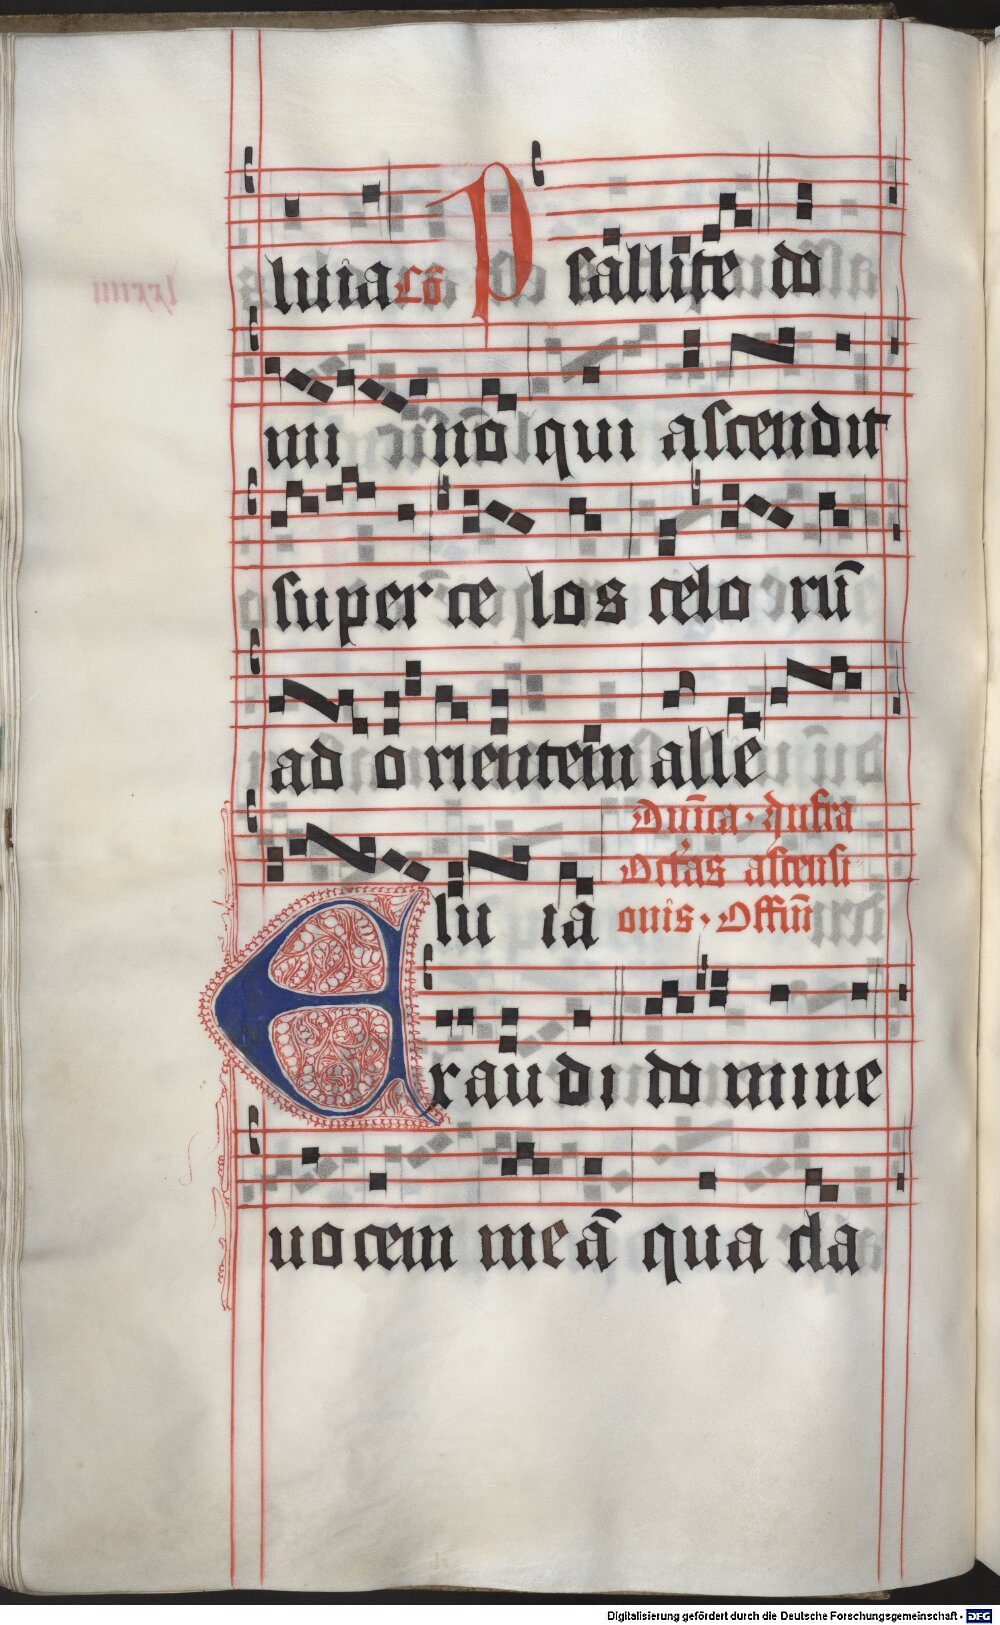 luia Cõ Psallite do
mi nno qui ascendit
super ce los celo rũ
ad o rientem alle
Dñica · infra
Octãs ascensi
lu ia onis · Offiũ
Exau di do mine
uocem me ã qua da
Digitalisierung gefördert durch die Deutsche Forschungsgemeinschaft - DFG